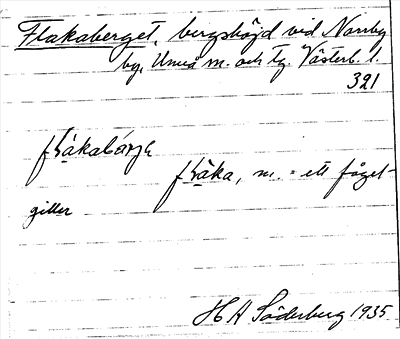 Flakaberget, bergshöjd vid Norrby
by, Umeå m. och tg. Västerb. l.
321
flàkabärje
flàka, m. = ett fågel-
giller
H A Söderberg 1935